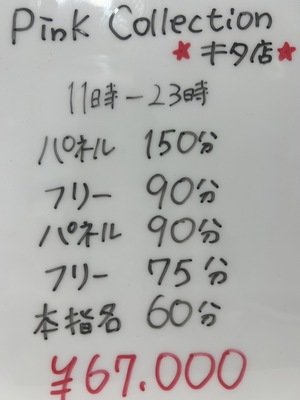 Pink Collection
★キタ店★
11時-23時
パネル 150分
フリー 90分
パネル 90分
フリー 75分
本指名 60分
¥67.000